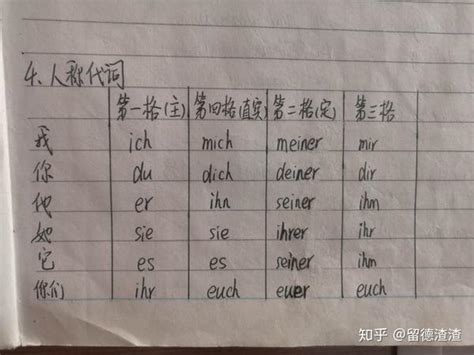 4. 人称代词
第一格(主) 第四格(直宾) 第二格(定) 第三格
我 ich mich meiner mir
你 du dich deiner dir
他 er ihn seiner ihm
她 sie sie ihrer ihr
它 es es seiner ihm
你们 ihr euch euer euch
知乎 @留德渣渣